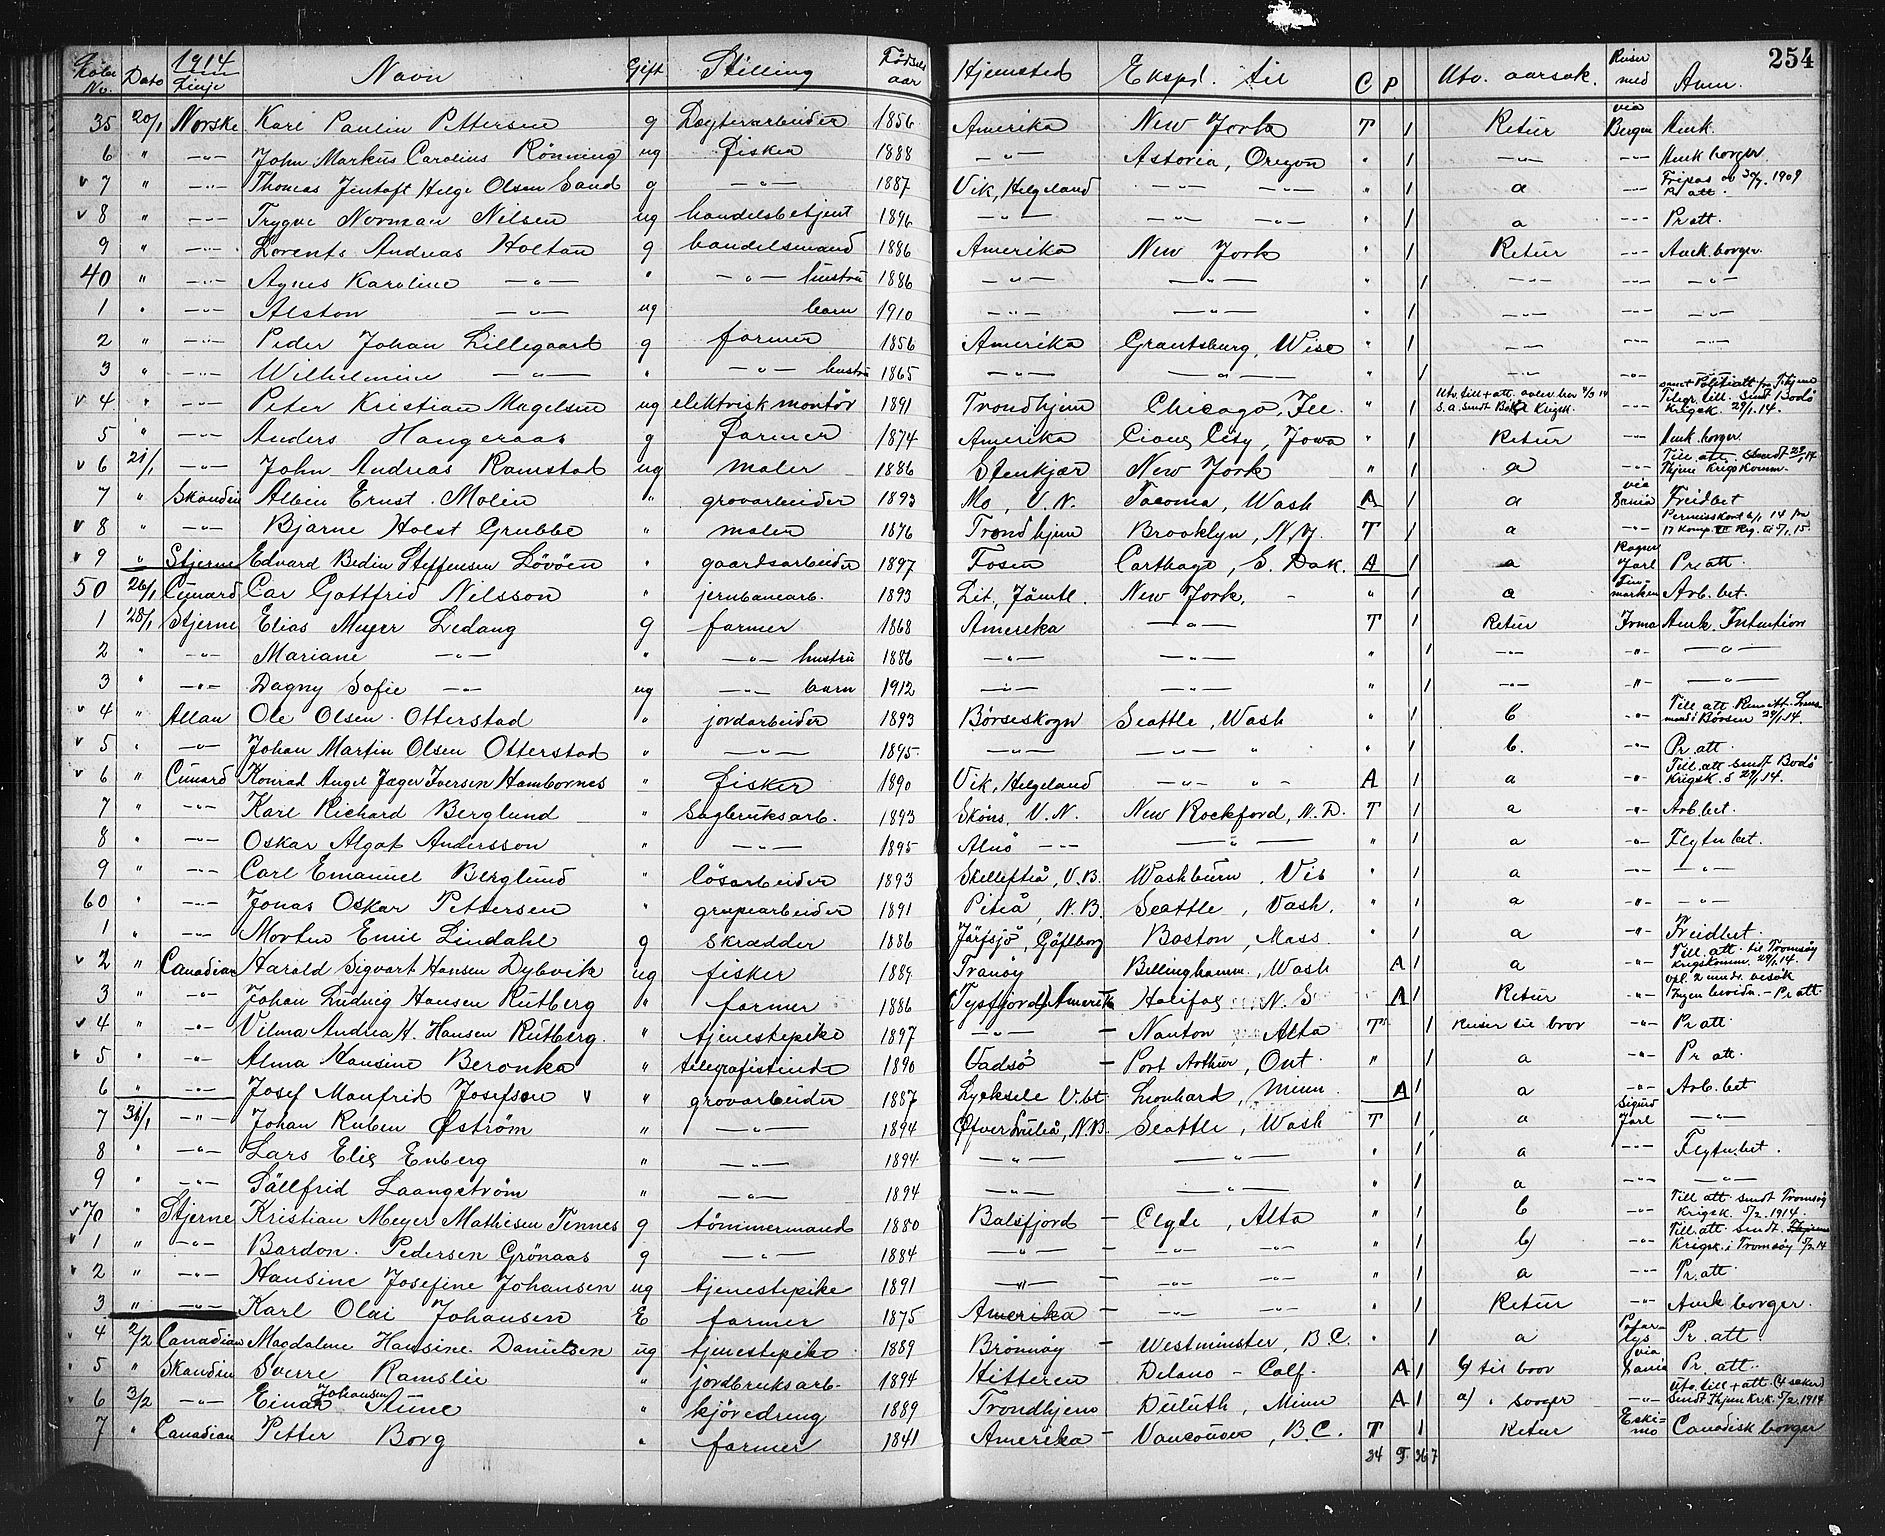 254
Løbe No. Dato 1914 Linje Navn Gift Stilling Fødsels aar Hjemsted Eksped. til C P. Utv. aarsak. Reiser med Anm.
35 20/1 Norske Karl Paulin Pettersen g Dagterarbeider 1856 Amerika New York T 1 Retur via Bergen Amk.
6 " —"— John Markus Carolius Rönning ug fisker 1888 —"— Astoria, Oregon " 1 —"— —"— Amk borger.
v 7 " —"— Thomas Jentoft Helge Olsen Sand g —"— 1887 Vik, Helgeland —"— —"— " 1 a —"— Fripas 1909 Pr att.
v 8 " —"— Trygve Norman Nilsen ug handelsbetjent 1896 —"— —"— —"— " 1 a —"— Pr att.
9 " —"— Lorents Andreas Holtan g handelsmand 1886 Amerika New York " 1 Retur —"— Amk. borger.
40 " —"— Agnes Karoline —"— " —"— hustru 1886 —"— —"— " 1 —"— —"— —"—
1 " —"— Alston —"— ug barn 1910 —"— —"— " 1 —"— —"— —"—
2 " —"— Peder Johan Lillegaard g farmer 1856 Amerika Grantsburg, Wisc " 1 —"— —"— —"—
3 " —"— Wilhelmine —"— " —"— hustru 1865 —"— —"— " 1 —"— —"— —"—
v 4 " —"— Peter Kristian Magelsen ug elektrisk montör 1891 Trondhjem Chicago, Ill. " 1 Utv. till + att. s.a. sendt Krigsk. —"— Telegr. till. sendt Bodö Krigsk. 29/1.14.
5 " —"— Anders Haugeraas g farmer 1874 Amerika Cioux City, Jowa " 1 Retur —"— Amk. borger
v 6 21/1 —"— John Andreas Ramstad ug maler 1886 Stenkjær New York " 1 a —"— Till. att. sendt Thjem Krigskomm.
7 " Skandin Albin Ernst Molin " grovarbeider 1893 Mo, V.N. Tacoma, Wash A 1 a via Dania Freidbet
v 8 " —"— Bjarne Holst Grubbe " maler 1876 Trondhjem Brooklyn, N.Y. T 1 a —"— Permisskort 14 fra 17 Komp. Reg.
v 9 " Stjerne Edvard Bedin Steffensen Lövöen " gaardsarbeider 1897 Fosen Carthage, S. Dak. A 1 a Ragnv Jarl Pr. att.
50 26/1 Cunard Car Gottfrid Nilsson " jernbanearb. 1893 Lit, Jämtl. New York, " 1 a Finmarken Arb. bet.
1 28/1 Stjerne Elias Meyer Ledang g farmer 1868 Amerika —"— T 1 Retur Irma Amk. Intention
2 " —"— Mariane —"— " —"— hustru 1886 —"— —"— " 1 —"— —"— —"—
3 " —"— Dagny Sofie —"— ug —"— barn 1912 —"— —"— " 1 —"— —"— —"—
v 4 " Allan Ole Olsen Otterstad " jordarbeider 1893 Börseskogn Seattle, Wash " 1 b —"— Till. att Lensmand i Börsen 29/1.14.
v 5 " —"— Johan Martin Olsen Otterstad " —"— 1895 —"— —"— " " 1 b. —"— Pr. att.
v 6 " Cunard Konrad Angel Jæger Iversen Hambornes " fisker 1890 Vik, Helgeland —"— " A 1 a —"— Till. att sendt Bodö Krigsk. 29/1.14.
7 " —"— Karl Richard Berglund " sagbruksarb. 1893 Sköns, V.N. New Rockford, N.D. T 1 a —"— Arb bet.
8 " —"— Oskar Algot Andersson " —"— 1895 Alnö —"— —"— " 1 a —"— Flytn bet.
9 " —"— Carl Emanuel Berglund " lösarbeider 1893 Skellefteå, V.B. Washburn, Vis " 1 a —"— —"—
60 " —"— Jonas Oskar Pettersen " grupearbeider 1891 Piteå, N.B. Seattle, Vash. " 1 a —"— —"—
1 " —"— Morten Emil Lindahl g skrædder 1886 Järfsjö, Gäflborg Boston, Mass. " 1 a —"— Freidbet.
v 2 " Canadian Harald Sigvart Hansen Dybvik ug fisker 1889 Tranöy Bellinghamm, Wash A 1 a —"— Till. att. til Tromsöy Krigskomm. 29/1.14.
3 " —"— Johan Ludvig Hansen Rutberg " farmer 1886 (Tysfjord) Amerika Halifax, N.S A 1 Retur —"— opl. 2 mndr. besök Ingen bevidn. - Pr att
v 4 " —"— Vilma Andrea H. Hansen Rutberg. " tjenestepike 1897 —"— — Nanton, Alta T 1 Reiser til bror —"— Pr att.
v 5 " —"— Alma Hansine Beronka " telegrafistinde 1890 Vadsö — Port Arthur, Ont. " 1 a —"— Pr att.
6 " —"— Josef Manfrid Josefson " " grovarbeider 1887 Lycksele V.bt Leonhard, Minn A 1 a —"— Arb. bet
7 31/1 —"— Johan Ruben Øström " —"— 1894 Øfver Luleå, N.B. Seattle, Wash T 1 a Sigurd Jarl —"—
8 " —"— Lars Elis Enberg " —"— 1894 —"— —"— " 1 a —"— Flytn.bet.
9 " —"— Sällfrid Laangström " —"— 1894 —"— —"— " 1 a —"— —"—
v 70 " Stjerne Kristian Meyer Mathisen Tennes g tömmermand 1880 Balsfjord — Clyde, Alta " 1 b —"— Till att. sendt Tromsöy Krigsk. 5/2.1914.
v 1 " —"— Bardon. Pedersen Grönaas g —"— 1884 —"— — —"— —"— " 1 b) —"— Till. att. sendt Krigsk. i Tromsöy 5/2.14
v 2 " —"— Hansine Josefine Johansen ug tjenestepike 1891 —"— — —"— —"— " 1 a —"— Pr. att
3 " —"— Karl Olai Johansen E farmer 1875 Amerika — —"— —"— " 1 Retur —"— Amk borger.
v 4 2/2 Canadian Magdalene Hansine Danielsen ug tjenestepike 1889 Brönnöy — Westminster, B.C. " 1 a Polarlys Pr. att
v 5 " Skandin Sverre Ramslie " jordbruksarb. 1894 Hitteren — Delano — Calf. A 1 b) til bror via Dania Pr. att.
v 6 3/2 —"— Einar Johansen Aune " kjøredreng 1889 Trondhjem Duluth, Minn A 1 a) " svoger —"— Utv. till + att. (4 saker) Sendt Thjem Krk. 5/2.1914
7 " Canadian Petter Borg " farmer 1841 Amerika — Vancouver, B.C. T 1 Retur Eskimo Canadisk borger
34 9 36 7